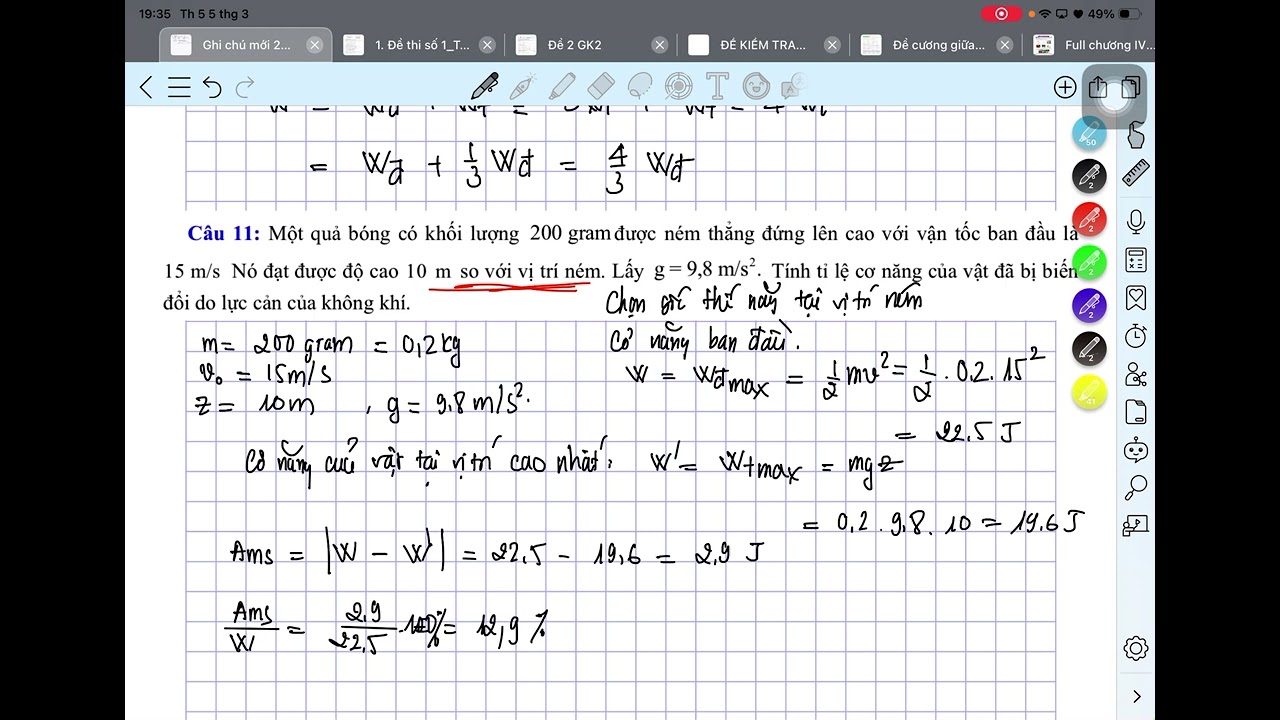 19:35 Th 5 5 thg 3
49%
Ghi chú mới 2...
1. Đề thi số 1_T...
Đề 2 GK2
ĐỀ KIỂM TRA...
Đề cương giữa...
Full chương IV...
= Wđ + 1/3 Wđ = 4/3 Wđ
Câu 11: Một quả bóng có khối lượng 200 gram được ném thẳng đứng lên cao với vận tốc ban đầu là
15 m/s Nó đạt được độ cao 10 m so với vị trí ném. Lấy g = 9,8 m/s². Tính tỉ lệ cơ năng của vật đã bị biến
đổi do lực cản của không khí.
Chọn gốc thế năng tại vị trí ném
m = 200 gram = 0,2 kg
Cơ năng ban đầu.
v₀ = 15 m/s
W = Wđmax = 1/2 mv² = 1/2 . 0,2 . 15²
z = 10m , g = 9,8 m/s².
= 22.5 J
Cơ năng của vật tại vị trí cao nhất: W' = Wtmax = mgz
= 0,2 . 9,8 . 10 = 19.6 J
Ams = |W - W'| = 22,5 - 19,6 = 2,9 J
Ams/W = 2,9/22,5 . 100% = 12,9 %
50
2
2
2
2
2
41